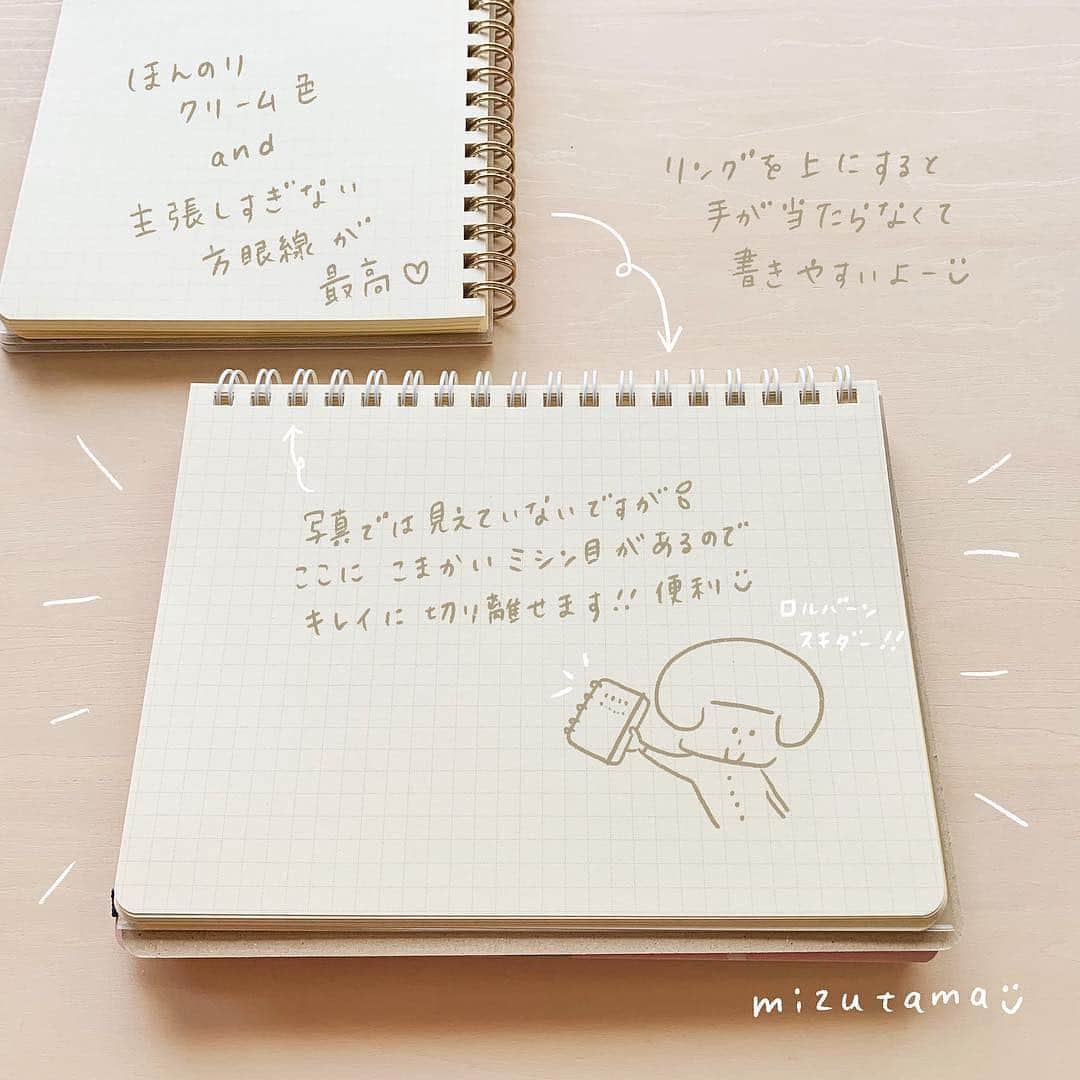 ほんのり
クリーム色
and
主張しすぎない
方眼線が
最高♡
リングを上にすると
手が当たらなくて
書きやすいよー
写真では見えていないですが
ここに こまかいミシン目があるので
キレイに切り離せます!! 便利
ロルバーン
スキダー!!
mizutama